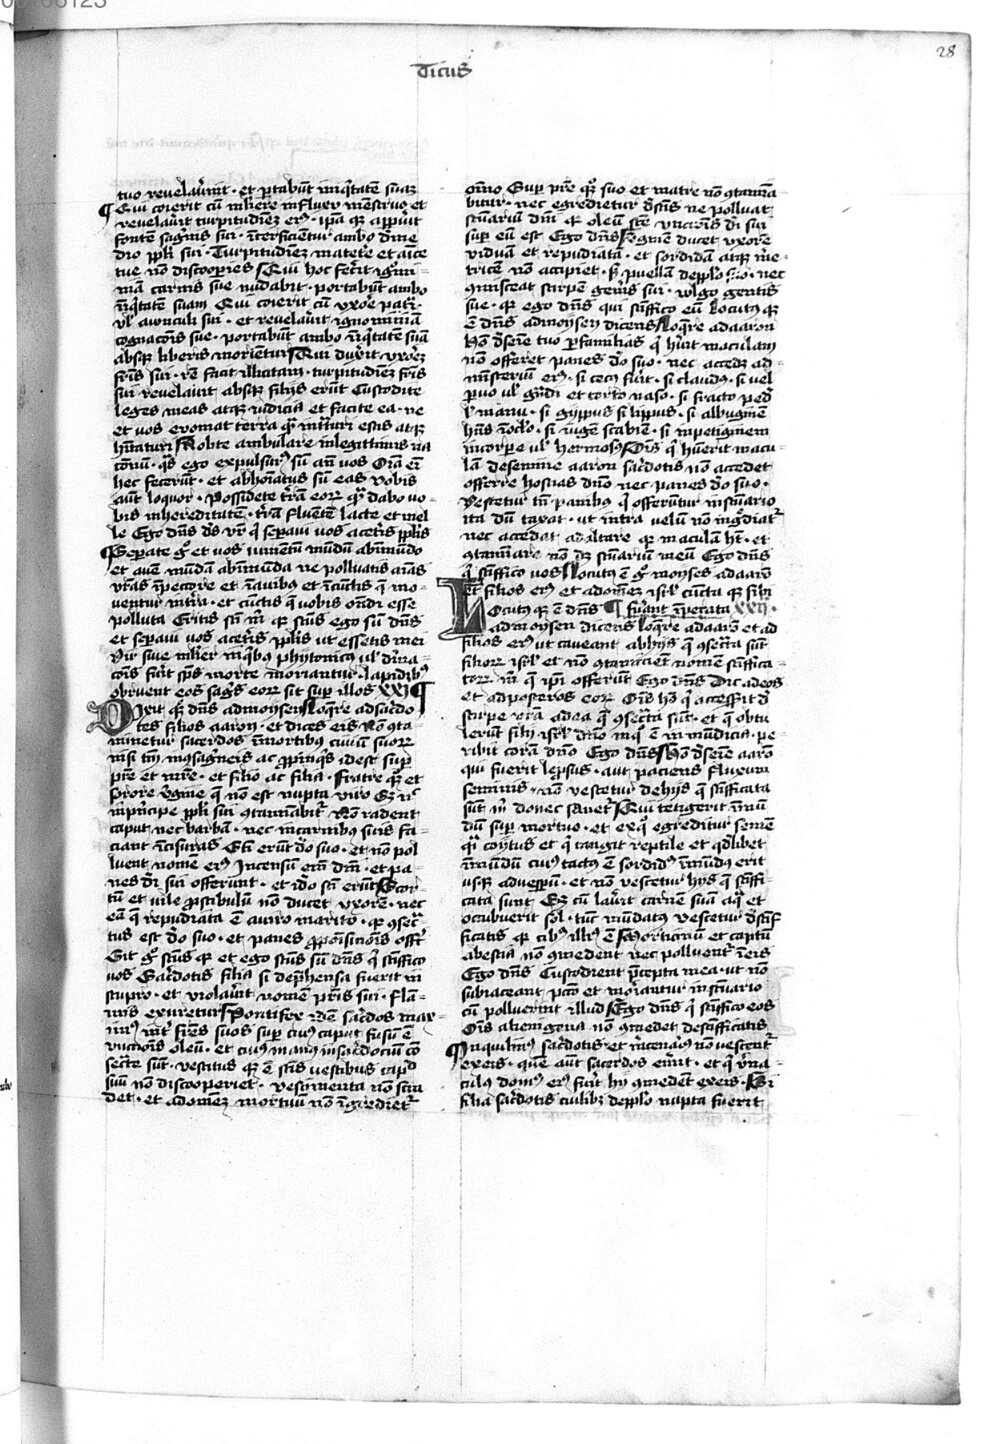 Ticus
28
tuo revelav̄int · et portabūt iniq̄tatē suā
¶ Qui coierit cū mliere in fluxu mēstruo et
revelav̄it turpitudinē eiꝰ · ipā qꝫ apper̄uit
fontē sāgnis sui · īterficientur ambo de me
dio ppli sui · Turpitudinē matert̄e et amite
tue nō discooperies Qui hoc fecerit ignomi-
niā carnis sue nudabit · portabunt ambo
īiq̄tatē suam Qui coierit cū uxore pat̄i ·
ul̓ avunculi sui · et revelav̄it ignominiā
cognacōis sue · portabunt ambo īiq̄tatē suā
absqꝫ liberis morientur Qui duxerit uxorē
fr̄is sui · rē facit illicitam · turpitudinē fr̄is
sui revelavit absqꝫ filijs erūt Custodite
leges meas atqꝫ iudicia et facite ea · ne
et vos evomat terra quā int̄turi estis atqꝫ
hītaturi Nolite ambulare in legittimis na
cōnū · q̄s ego expulsurꝰ sū an̄ vos Om̄ia em̄
hec fecerūt · et abhoīatus sū eas vobis
aut̄ loquor · Possidete t̄rā eorꝫ quā dabo vo-
bis in hereditatē · t̄rā fluentē lacte et mel
le Ego dn̄s ds̄ vr̄ q̄ sep̄avi vos a cet̄is pplis
¶ Sep̄ate g̊ et vos iumentū mūdū ab īmūdo
et avē mūdā ab īmūda ne polluatis aīas
vr̄as ī pecore et ī avibꝰ et ī cūctis q̄ mo-
ventur in t̄ra · et cūctis q̄ vobis on̄di esse
polluta Eritis sc̄i m̄ qꝫ sc̄us ego sū dn̄s
et sep̄avi vos a cet̄is pplis ut essetis mei
Vir sive mlier in q̄bꝰ phytonicꝰ ul̓ divīa-
cōis fuit sps̄ morte moriantur · lapidibꝰ
obruent eos sāgs eorꝫ sit sup̄ illos XXI ¶
Dixit qꝫ dn̄s ad moysen Loq̄re ad sac̄do
tes filios aaron · et dices eis Nō ꝯta-
minetur sacerdos ī mortibꝰ civiū suorꝫ
nisi tm̄ in ꝯsāgneis ac ꝓpinqs̄ idest sup̄
pr̄e et mr̄e · et filio ac filia · fratre qꝫ et
sorore ṽgine que nō est nupta viro Sꝫ n̄
in p̄ncipe ppli sui ꝯtamīabit̄ Nō radent
caput nec barbā · nec in carnibꝰ suis fa-
ciant īcisuras Sc̄i erūt deo suo · et nō pol
luent nomē eiꝰ Incensū em̄ dn̄i · et pa-
nes dei sui offerunt · et ido sc̄i erūt Scor-
tū et vile ꝓstibulū nō ducet uxorē · nec
eā q̄ repudiata ē a viro marito · qꝫ ꝯsec̄-
tus est deo suo · et panes ꝓposicionis off̄t
Sit g̊ sc̄us qꝫ et ego sc̄us sū dn̄s q̄ sc̄ifico
vos Sac̄dotis filia si dep̄hensa fuerit in
stupro · et violav̄it nomē pr̄is sui · flā-
mis exuretur Pontifex idē sac̄dos max-
imꝰ int̄ fr̄es suos sup̄ cuiꝰ caput fusū ē
unctiōis oleū · et cuiꝰ manꝰ in sac̄docio cō
secr̄te sūt · vestitus qꝫ ē sc̄is vestibus capd
suū nō discooperiet · vestimenta nō scin
det · et ad omnē mortuū nō īgrediet̄
om̄o Sup̄ pr̄e qꝫ suo et matre nō ꝯtamīa
bitur · nec egredietur de sc̄is ne polluat
sc̄uariū dn̄i qꝫ oleū sc̄e unctiōis dei sui
sup̄ eū est Ego dn̄s Virginē ducet uxorē
viduā et repudiatā · et sordidā atqꝫ me-
tricē nō accipiet · sꝫ puellā de pplo suo · nec
ꝯmisceat stirpē geniꝰ sui · vulgo gentis
sue · qꝫ ego dn̄s qui sc̄ifico eū Locutꝰ qꝫ
ē dn̄s ad moysen dicens Loq̄re ad aaron
Ho de se͞ie tuo ꝑ familias q̄ hūit maculam
nō offeret panes deo suo · nec accedꝫ ad
mīsteriū eiꝰ · si cecꝰ fūit · si claudꝰ · si vel
parvo ul̓ gr̄ndi et torto naso · si fracto ped
l̓ manu · si gyppus si lippus · si albuginē
hn̄s ī oclo · si iugē scabiē · si inpetiginem
in corpe ul̓ hermosꝰ Om̄is q̄ hūerit macu-
lā de semine aaron sac̄dotis nō accedet
offerre hostias dn̄o nec panes deo suo ·
Vescetur tn̄ panibꝰ q̄ offeruntur in sc̄uario
ita dū taxat · ut intra velū nō īgrediat̄
nec accedat ad altare qꝫ maculā hꝫ · et
ꝯtamīare nō dꝫ sc̄uariū meū Ego dn̄s
q̄ sc̄ifico vos Locutꝰ ē g̊ moyses ad aarō
et filios eiꝰ et ad omnē isrl̓ cūcta qꝫ sibi
fūant īperata XXII ·
Locutꝰ qꝫ ē dn̄s ¶
ad moysen dicens Loq̄re ad aarō et ad
filios eiꝰ ut caveant ab hijs q̄ ꝯsecr̄ta sūt
filiorꝫ isrl̓ et nō ꝯtaminēt nomē sc̄ifica-
torꝫ m̄ q̄ ipi offerūt Ego dn̄s Dic ad eos
et ad posteros eorꝫ Om̄is ho q̄ accesserit de
stirpe vr̄a ad ea q̄ ꝯsecr̄ta sūt · et q̄ obtu
lerūt filij isrl̓ dn̄o in q̊ ē inmūdicia · pe-
ribit corā dn̄o Ego dn̄s Ho de se͞ie aarō
qui fuerit leprosus · aut paciens fluxum
seminis · nō vescetur de hijs q̄ sc̄ificata
sūt m̄ donec sanet̄ Qui tetigerit īmū
dū sup̄ mortuo · et ex q̊ egreditur semē
q̄i coytus et q̄ tangit reptile et qdlibet
īmūdū cuiꝰ tactꝰ ē sordidꝰ īmūdꝰ erit
usqꝫ ad vesp̄um · et nō vescetur hijs q̄ sc̄ifi-
cata sunt Sꝫ cū lav̄it carnē suā aq̄ et
occubuerit sol · tūc mūdatus vescetur de sc̄if
ficatis qꝫ cibꝰ illiꝰ ē Morticinū et captū
a bestia nō ꝯmedent nec polluent̄ ī eis
Ego dn̄s Custodient p̄cepta mea · ut nō
subiaceant pctō et moriantur in sc̄uario
cū polluerint illud Ego dn̄s q̄ sc̄ifico eos
Om̄is alienigena nō ꝯmedet de sc̄ificatis
¶ Inquilinꝰ sac̄dotis · et m̄cenariꝰ nō vescent̄
ex eis · quē aut̄ sacerdos em̄it · et q̄ v̄na-
culꝰ domꝰ eiꝰ fūit hij ꝯmedēt ex eis · Si
filia sac̄dotis cuilibꝫ de pplo nupta fuerit